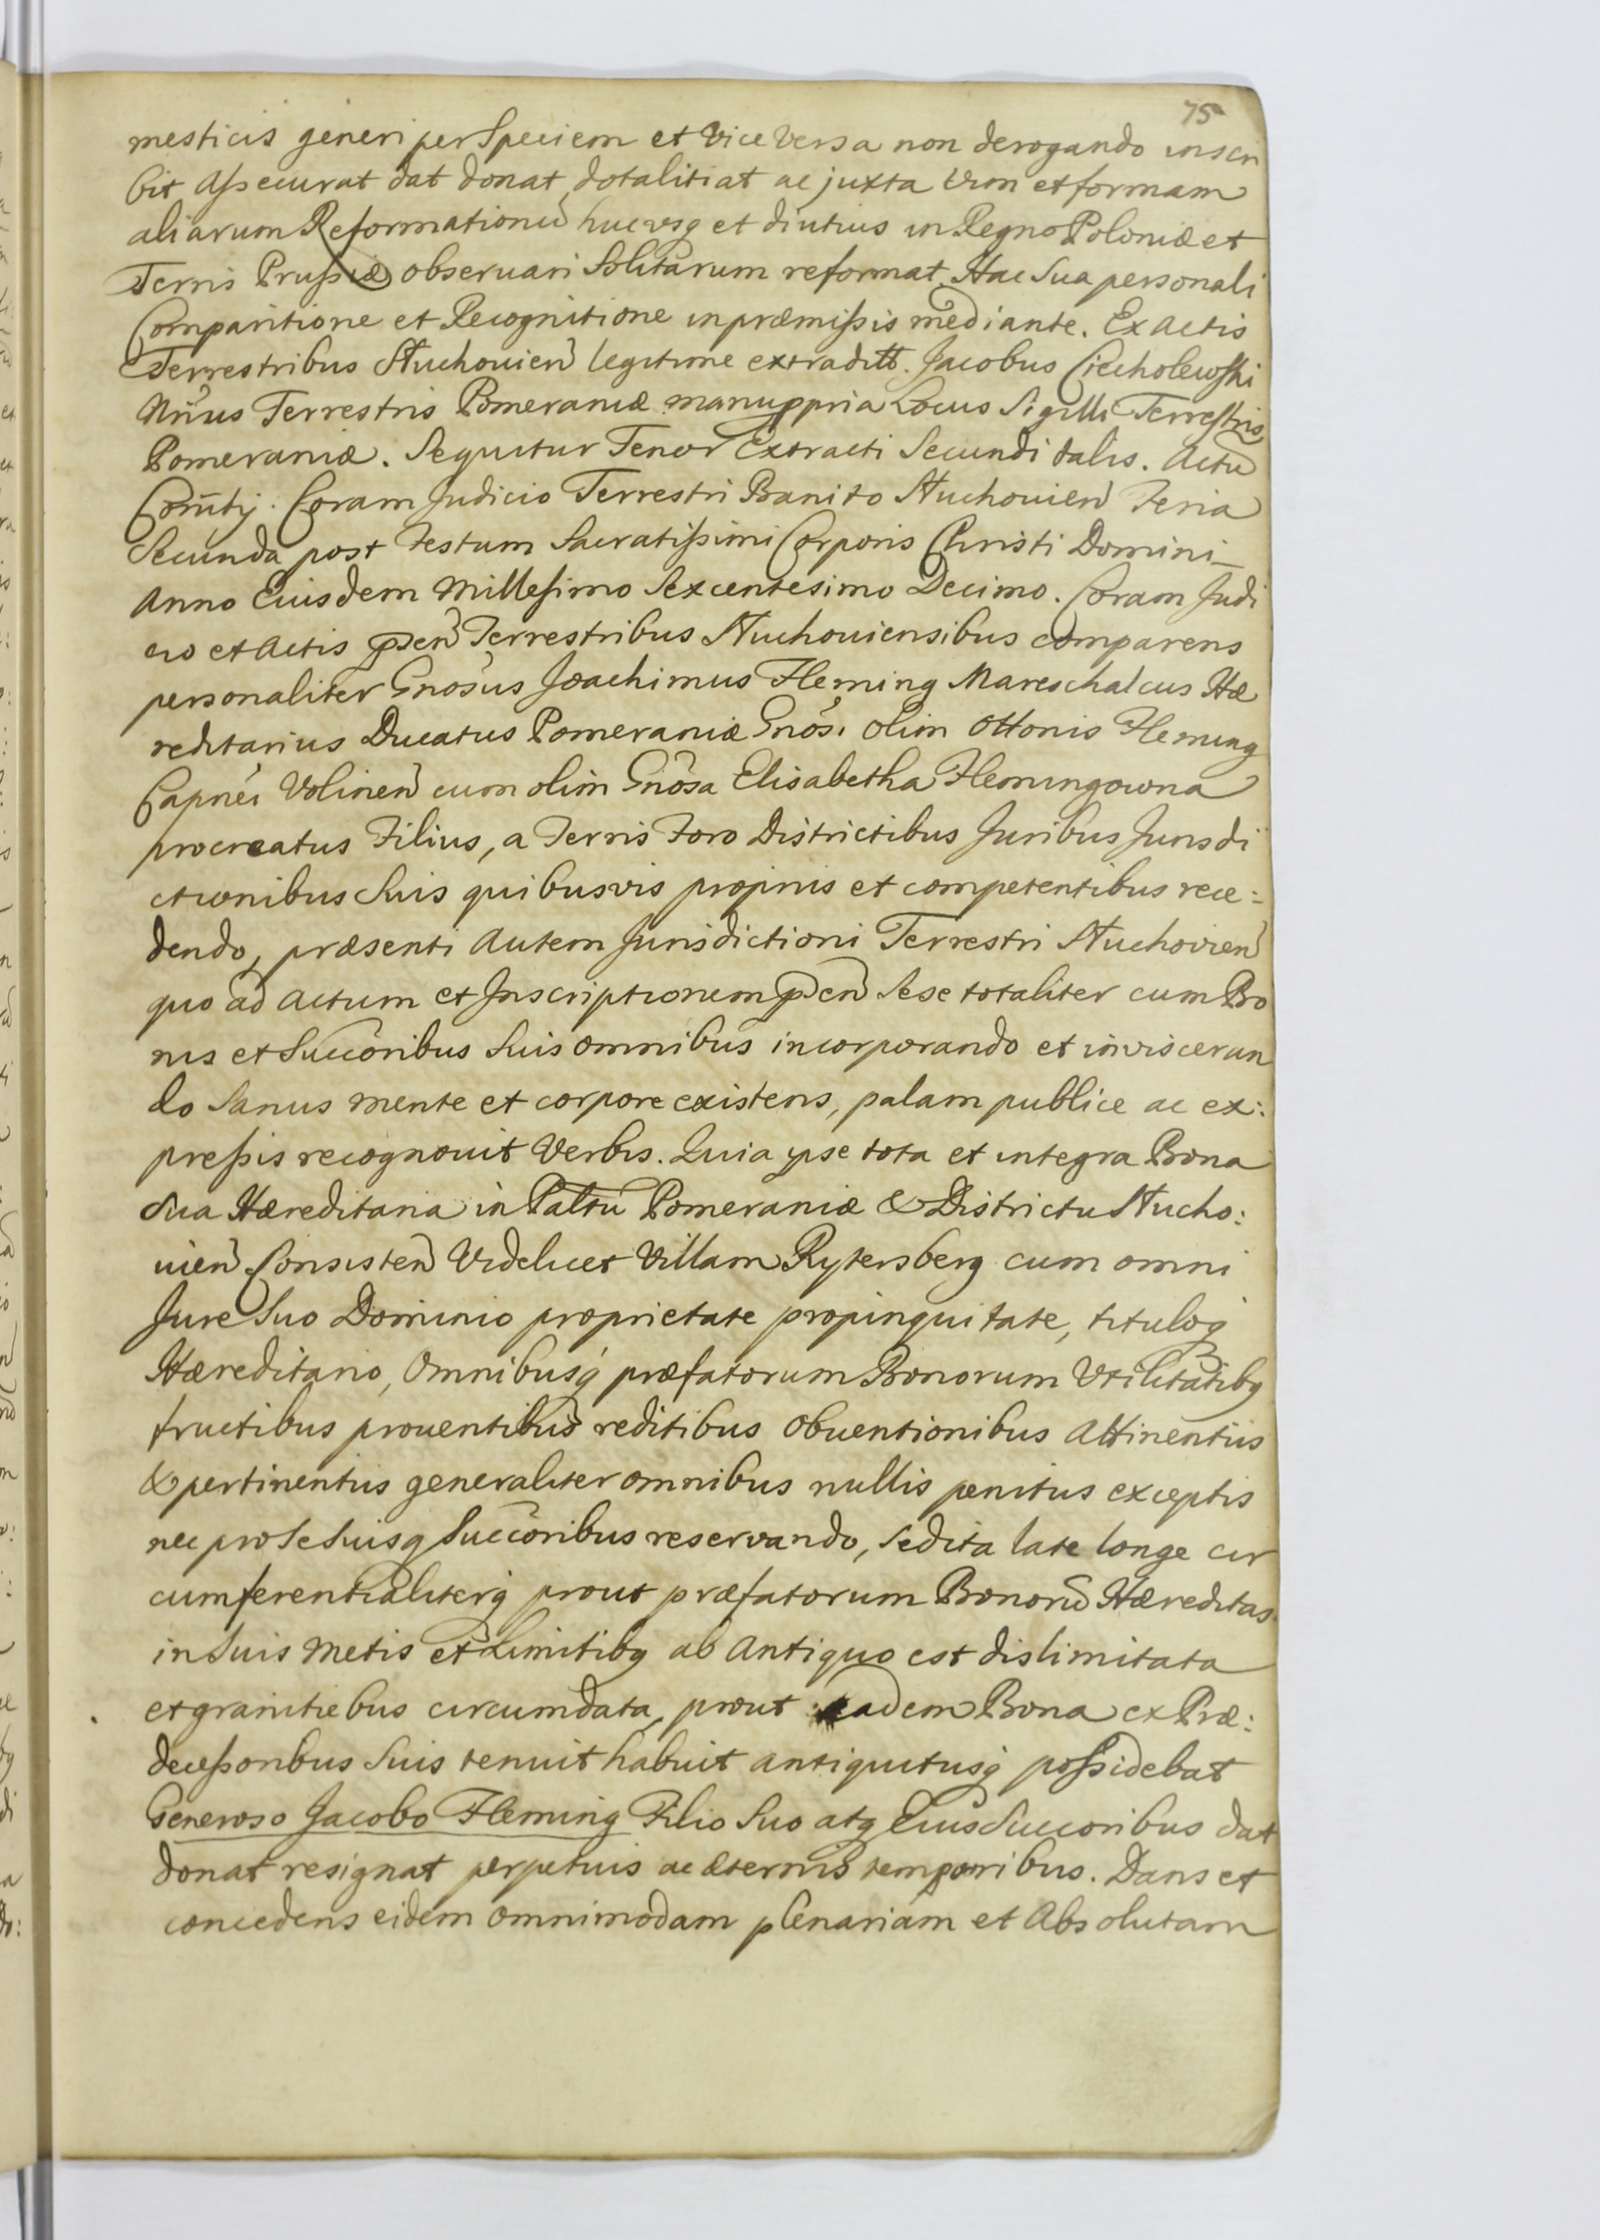 75
mesticis generi per Speciem et Vice Versa non derogando inscri
bit Assecurat dat donat dotalitiat ac juxta Vim et formam
aliarum Reformationũ hucusq et diutius in Regno Poloniæ et
Terris Prussiæ observari Solitarum reformat. Hac Sua personali
Comparitione et Recognitione in præmissis mediante. Ex Actis
Terrestribus Stuchouien̄ legitime extraditt. Jacobus Ciecholewski
Nrius Terrestris Pomeraniæ manuppria Locus Sigilli Terrestris
Pomeraniæ. Sequitur Tenor Extracti Secundi talis. Actũ
Com̄tj. Coram Judicio Terrestri Banito Stuchouien̄ Feria
Secunda post Festum Sacratissimi Corporis Christi Domini
Anno Eiusdem Millesimo Sexcentesimo Decimo. Coram Judi
cio et Actis p̄sen̄ Terrestribus Stuchouiensibus comparens
personaliter Gnosus Joachimus Fleming Mareschalcus Hæ
reditarius Ducatus Pomeraniæ Gnosi olim Ottonis Fleming
Capnei Volinen̄ cum olim Gnosa Elisabetha Flemingowna
procreatus Filius, a Terris Foro Districtibus Juribus Jurisdi
ctionibus Suis quibusvis propriis et competentibus rece:
dendo, præsenti Autem Jurisdictioni Terrestri Stuchovien̄
quo ad Actum et Inscriptionem p̄sen̄ Sese totaliter cum Bo
nis et Succoribus Suis omnibus incorporando et invisceran
do Sanus mente et corpore existens, palam publice ac ex:
pressis recognouit Verbis. Quia ipse tota et integra Bona
Sua Hæreditaria in Paltũ Pomeraniæ & Districtu Stucho:
uien̄ Consisten̄ Videlicet Villam Rytersberg cum omni
Jure Suo Dominio proprietate propinquitate, tituloq
Hæreditario, Omnibusq præfatorum Bonorum Utilitatibq
fructibus prouentibus reditibus obuentionibus Attinentiis
& pertinentiis generaliter omnibus nullis penitus exceptis
nec pro Se Suisq Succoribus reservando, Sed ita late longe cir
cumferentialiterq prout præfatorum Bonorũ Hæreditas
in Suis Metis et Limitibq ab Antiquo est dislimitata
et granitiebus circumdata, prout eadem Bona ex Præ:
decessoribus Suis tenuit habuit antiquitusq possidebat
Generoso Jacobo Fleming Filio Suo atq Eius Succoribus dat
donat resignat perpetuis ac æternis temporibus. Dans et
concedens eidem omnimodam plenariam et Absolutam